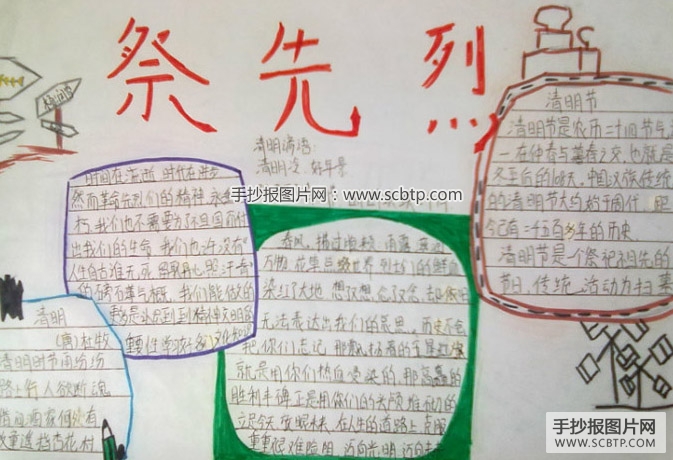 祭先烈
清明谚语:
清明没 好年景
手抄报图片网 www.scbtp.com
时间在流逝 时代在进步
然而革命先烈们的精神 永
朽,我们也不需要为了祖国而付
出我们的生命 我们也许没有"
人生自古谁无死 留取丹心照汗青"
我们能做的
清明
(唐)杜牧
清明时节雨纷纷
路上行人欲断魂
借问酒家何处有
牧童遥指杏花村
春风 雨露
万物 花草 世界 烈士们的鲜血
染红了大地 想了又想 念了又念
无法表达出我们的思思
把你们忘记 那飘扬着的五星红旗
就是用你们热血浸染的 那高矗的
胜利丰碑 正是用你们的头颅堆砌的
在人生的道路上 克服
重重艰难险阻 迈向光明
清明节
清明节是农历二十四节气
一 在仲春与暮春之交,也就是
冬至后的 天 中国汉族传统
的清明节大约始于周代 距
今已有二千五百多年的历史
清明节是个祭祀祖先的
节日,传统 活动为扫墓
手抄报图片网
WWW.SCBTP.COM